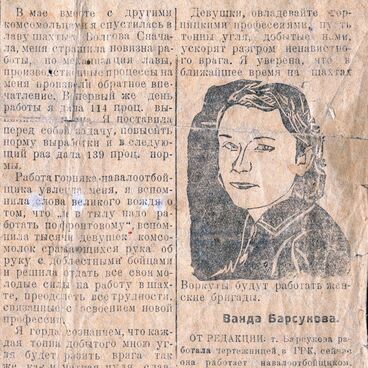 В мае вместе с другими
комсомольцами я спустилась в
лаву шахты т. Волгова. Снача-
ла, меня страшила новизна ра-
боты, но механизация лавы,
производственные процессы на
меня произвели обратное впе-
чатление. В первый же день
работы я дала 114 проц. вы-
Я поставила
перед собой задачу, повысить
норму выработки и в следую-
щий раз дала 139 проц. нор-
мы.
Работа горняка-навалоотбой-
щика увлекла меня, я вспом-
нила слова великого вождя о
том, что в тылу надо ра-
ботать по-фронтовому, вспом-
нила тысячи девушек комсо-
молок сражающихся рука об
руку с доблестными бойцами
и решила отдать все свои мо-
лодые силы на работу в шах-
те, преодолеть все трудности,
связанные с освоением новой
профессии.
Я горда сознанием, что каж-
дая тонна добытого мною уг-
ля будет разить врага так
же, как и меткая пуля
Девушки, овладевайте гор-
няцкими профессиями, пусть
тонны угля, добытые нами,
ускорят разгром ненавистно-
го врага. Я уверена, что в
ближайшее время на шахтах
Воркуты будут работать жен-
ские бригады.
Ванда Барсукова.
ОТ РЕДАКЦИИ: т. Барсукова ра-
ботала чертежницей, в ГРК, сейчас
она работает навалоотбойщиком.